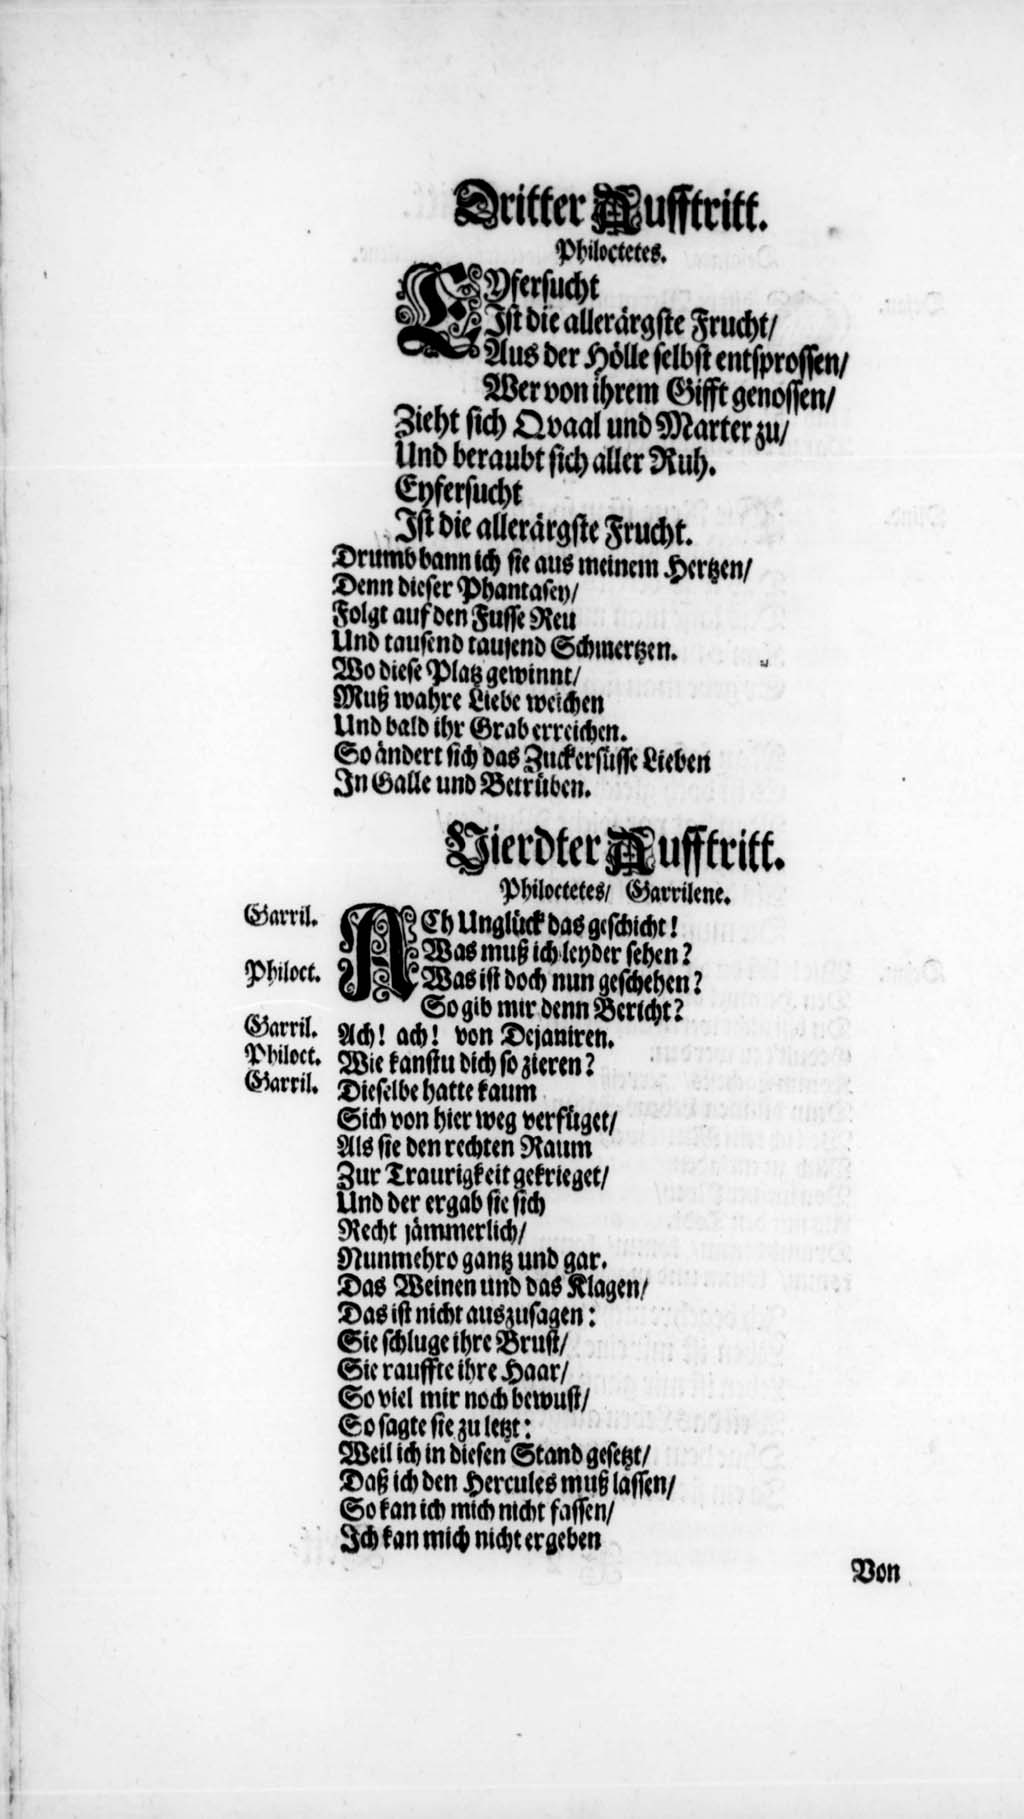 Dritter Aufftritt.
Philoctetes.
EYfersucht
Ist die allerärgste Frucht/
Aus der Hölle selbst entsprossen/
Wer von ihrem Gifft genossen/
Zieht sich Qvaal und Marter zu/
Und beraubt sich aller Ruh.
Eyfersucht
Ist die allerärgste Frucht.
Drumb bann ich sie aus meinem Hertzen/
Denn dieser Phantasey/
Folgt auf den Fusse Reu
Und tausend tausend Schmertzen.
Wo diese Platz gewinnt/
Muß wahre Liebe weichen
Und bald ihr Grab erreichen.
So ändert sich das Zuckersüsse Lieben
In Galle und Betrüben.
Vierdter Aufftritt.
Philoctetes/ Garrilene.
Garril. ACh Unglück das geschicht!
Was muß ich leyder sehen?
Philoct. Was ist doch nun geschehen?
So gib mir denn Bericht?
Garril. Ach! ach! von Dejaniren.
Philoct. Wie kanstu dich so zieren?
Garril. Dieselbe hatte kaum
Sich von hier weg verfüget/
Als sie den rechten Raum
Zur Traurigkeit gekrieget/
Und der ergab sie sich
Recht jämmerlich/
Nunmehro gantz und gar.
Das Weinen und das Klagen/
Das ist nicht auszusagen:
Sie schluge ihre Brust/
Sie rauffte ihre Haar/
So viel mir noch bewust/
So sagte sie zu letzt:
Weil ich in diesen Stand gesetzt/
Daß ich den Hercules muß lassen/
So kan ich mich nicht fassen/
Ich kan mich nicht ergeben
Von